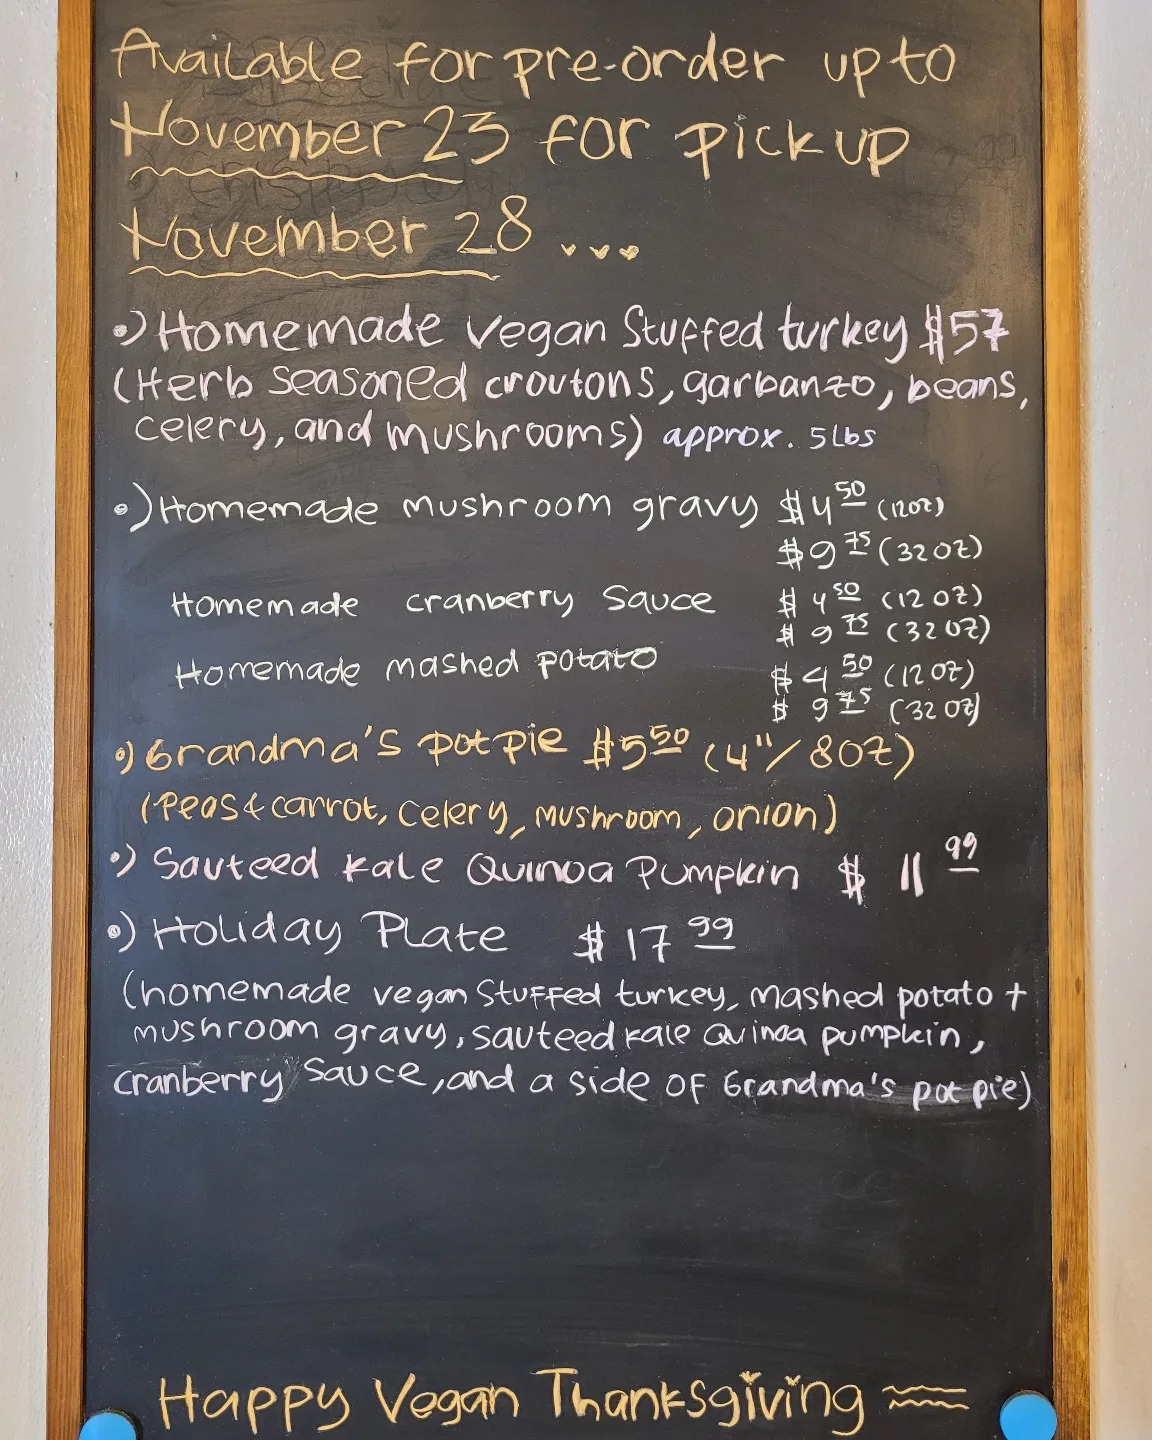 Available for pre-order up to
November 23 for pick up
November 28 ...
•) Homemade vegan Stuffed turkey $57
(Herb seasoned croutons, garbanzo, beans,
celery, and mushrooms) approx. 5 Lbs
•) Homemade mushroom gravy $4 50 (12oz)
$9 75 (32 oz)
Homemade cranberry Sauce $4 50 (12 oz)
$9 75 (32 oz)
Homemade mashed potato $4 50 (12 oz)
$9 75 (32 oz)
•) Grandma's pot pie $5 50 (4"/ 8oz)
(Peas & carrot, celery, mushroom, onion)
•) Sauteed kale Quinoa Pumpkin $ 11 99
•) Holiday Plate $17 99
(homemade vegan Stuffed turkey, mashed potato +
mushroom gravy, sauteed kale Quinoa pumpkin,
cranberry Sauce, and a side of Grandma's pot pie)
Happy Vegan Thanksgiving